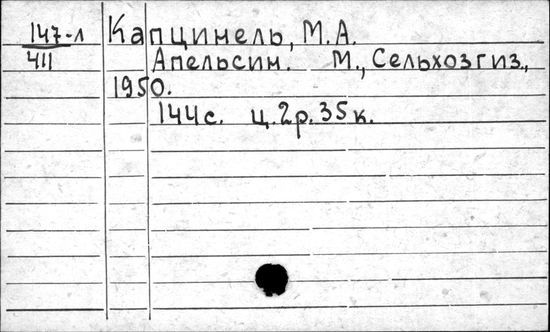 147-л Капцинель, М.А.
411 Апельсин. М., Сельхозгиз,
1950.
144с. ц.2р.35к.